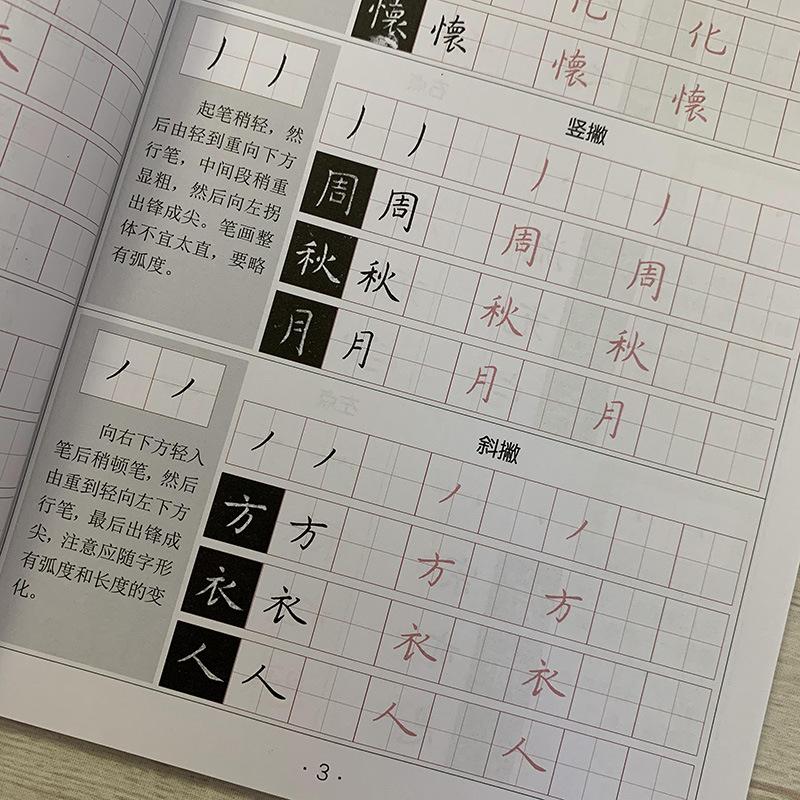 懷 懷 化 化
懷 懷
竖撇
起笔稍轻，然
后由轻到重向下方
行笔，中间段稍重
显粗，然后向左拐
出锋成尖。笔画整
体不宜太直，要略
有弧度。
周 周 周 周
秋 秋 秋 秋
月 月 月 月
斜撇
向右下方轻入
笔后稍顿笔，然后
由重到轻向左下方
行笔，最后出锋成
尖，注意应随字形
有弧度和长度的变
化。
方 方 方 方
衣 衣 衣 衣
人 人 人 人
·3·